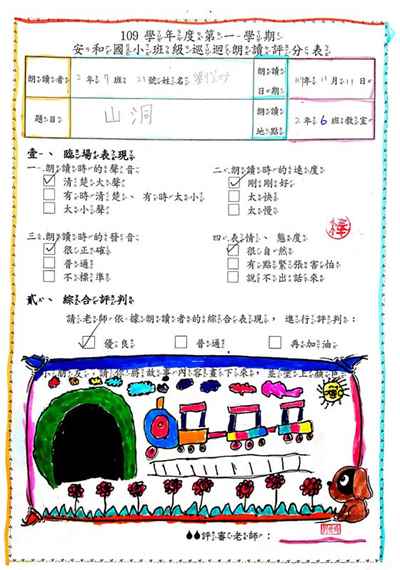 109學年度第一學期
安和國小班級巡迴朗讀評分表
朗讀者 2年7班 號姓名
朗讀日期 11月11日
題目 山洞
朗讀地點 2年6班教室
壹、臨場表現
一、朗讀時的聲音
清楚大聲
有時清楚、有時太小
太小聲
二、朗讀時的速度
剛剛好
太快
太慢
三、朗讀時的發音
很正確
普通
不標準
四、表情、態度
很自然
有點緊張害怕
說不出話來
貳、綜合評判
請老師依據朗讀者的綜合表現,進行評判:
優良
普通
再加油
小朋友,請你將故事內容畫下來,並塗上顏色
評審老師: